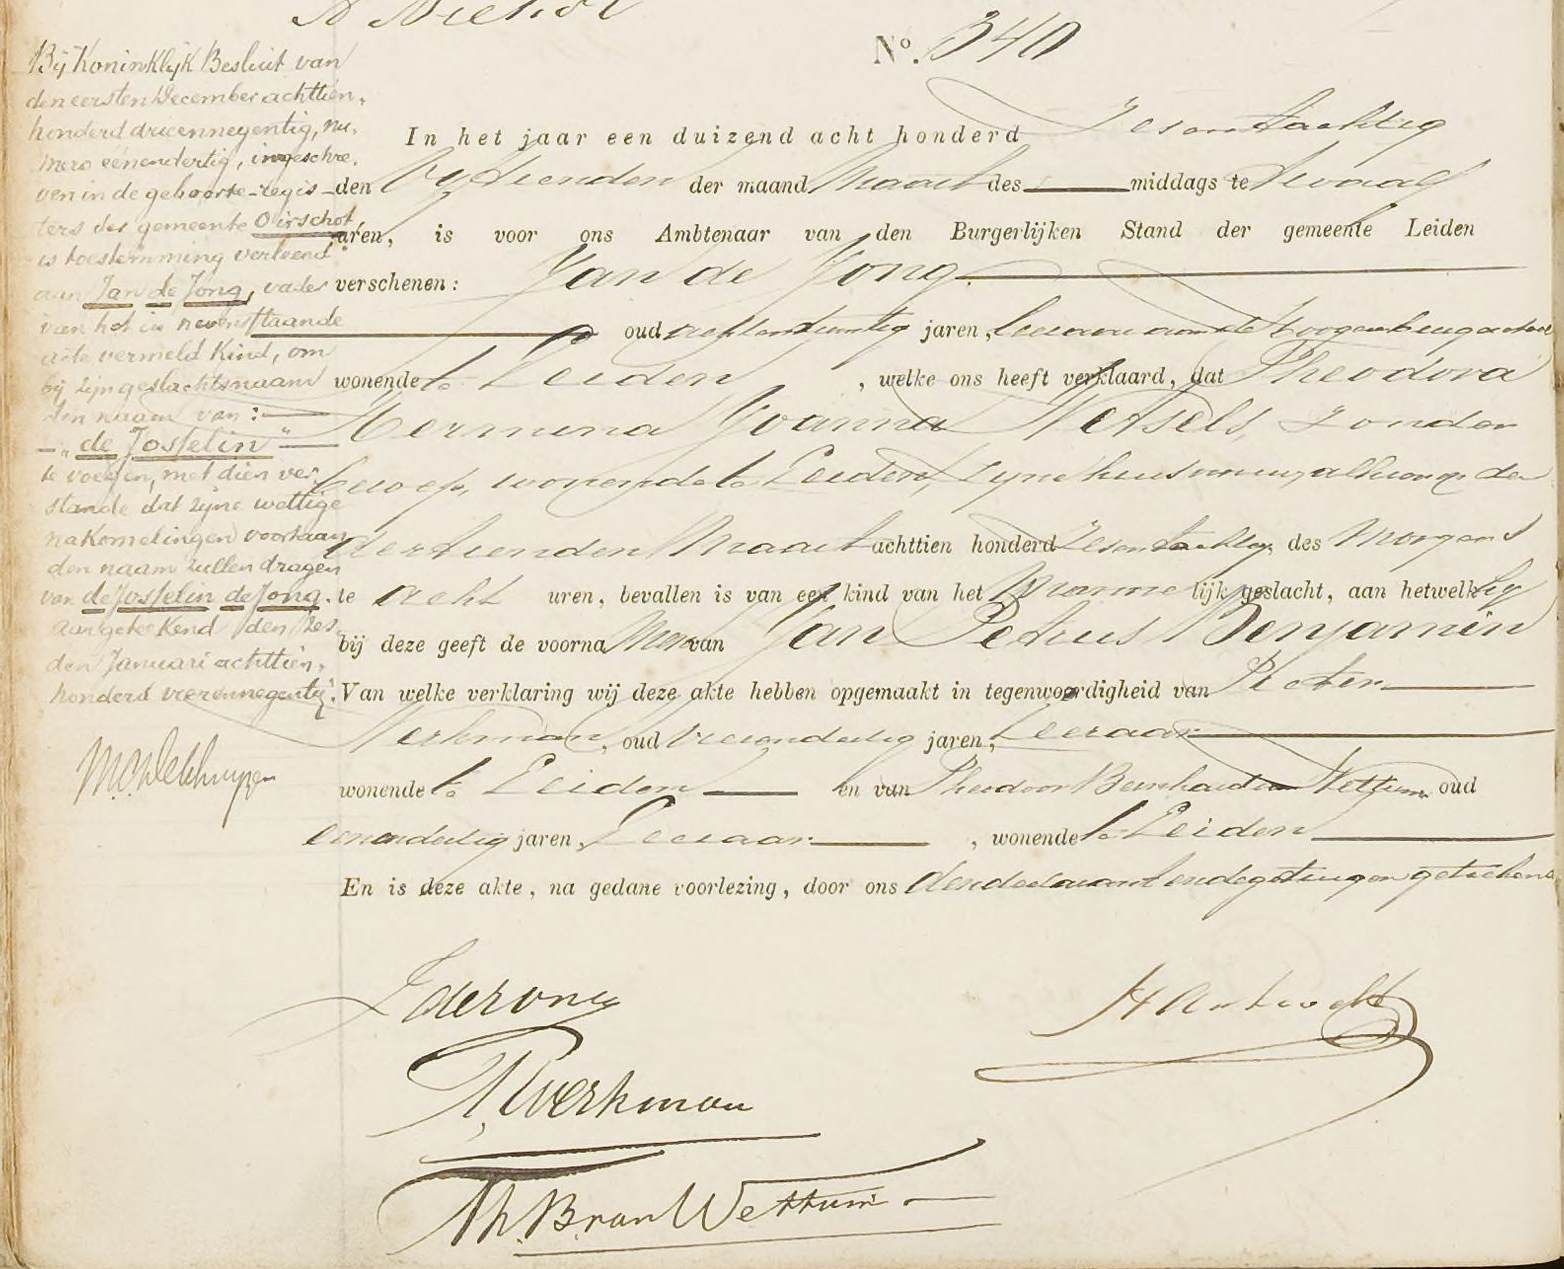 Nº. 340
Bij Koninklijk Besluit van
den eersten December achttien,
honderd drieennegentig, nu,
mero eénendertig, ingeschre,
ven in de geboorte-regis-
ters der gemeente Oirschot
is toestemming verleend
aan Jan de Jong, vader
van het in nevenstaande
acte vermeld kind, om
bij zijn geslachtsnaam
den naam van:
"de Josselin"
te voegen, met dien ver,
stande dat zijne wettige
nakomelingen voortaan
den naam zullen dragen
van de Josselin de Jong.
Aangeteekend den zes
den Januari achttien,
honderd vierennegentig.
In het jaar een duizend acht honderd zesentachtig
den vijftienden der maand Maart des middags te twaalf
uren, is voor ons Ambtenaar van den Burgerlijken Stand der gemeente Leiden
verschenen: Jan de Jong
oud achtentwintig jaren, leeraar aan de Hoogere burgerschool
wonende te Leiden, welke ons heeft verklaard, dat Theodora
Hermina Joanna zonder
beroep, wonende te Leiden, zyne huisvrouw, alhier op den
dertienden Maart achttien honderd zesentachtig des morgens
te acht uren, bevallen is van een kind van het Mannelijk geslacht, aan hetwelk hij
bij deze geeft de voornamen van Jan Petrus Benjamin
Van welke verklaring wij deze akte hebben opgemaakt in tegenwoordigheid van Pieter
Werkman, oud vierendertig jaren, Leeraar
wonende te Leiden en van Theodoor Bernhard van Wettum oud
eenendertig jaren, Leeraar, wonende te Leiden
En is deze akte, na gedane voorlezing, door ons den declarant en de getuigen geteekend
J de Jong
P. Werkman
Th. B. van Wettum